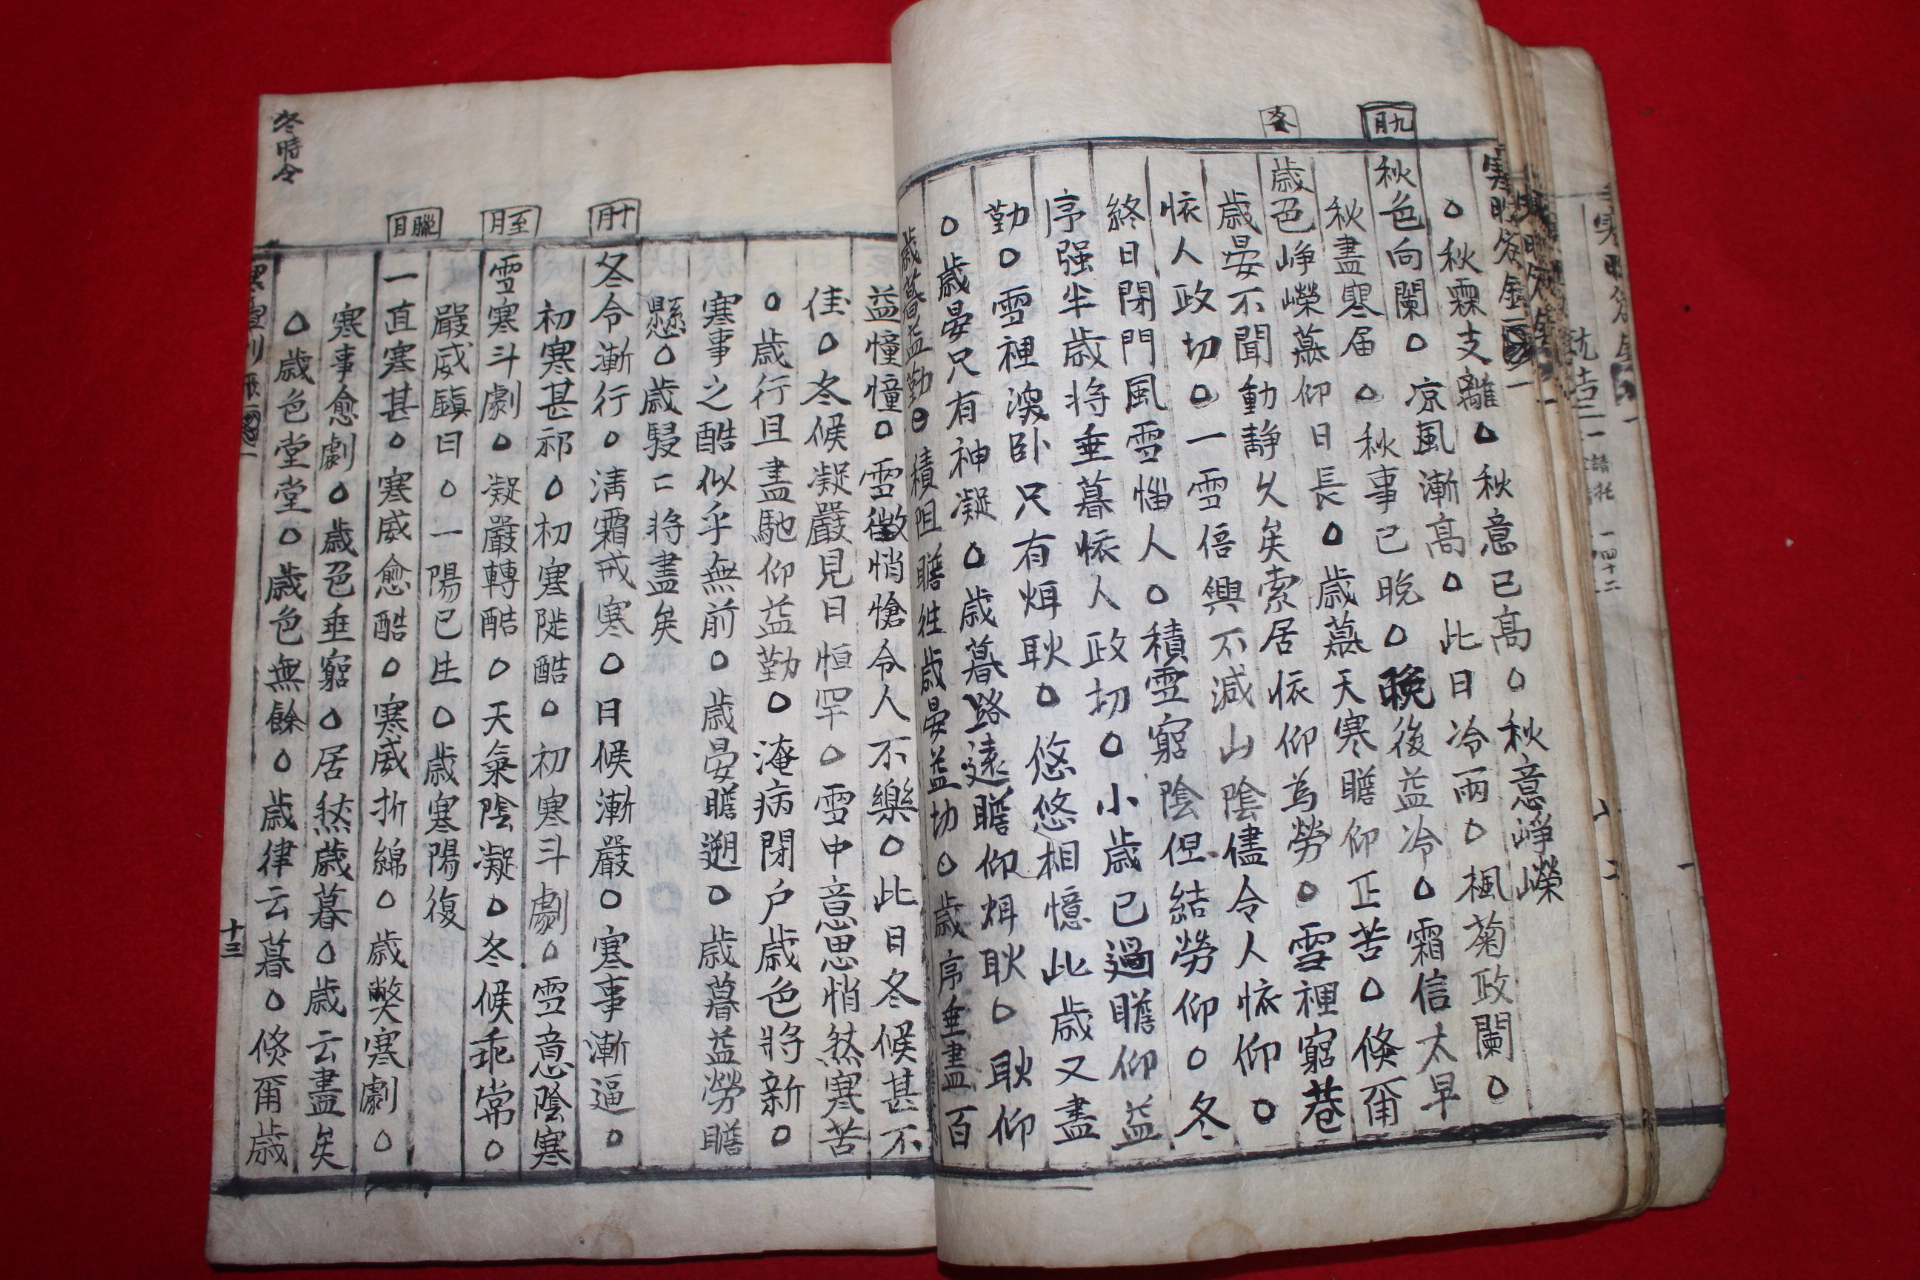 九月
冬
○秋霖支離○秋意已高○秋意崢嶸
秋色向闌○凉風漸高○此日冷雨○楓菊政闌○
秋盡寒届○秋事已晩○晩後益冷○霜信太早
歳色崢嶸歳暮仰日長○歳暮天寒瞻仰正苦○倐爾
歳晏不聞動静久矣索居依仰為勞○雪裡窮巷
依人政切○一雪倍興不减山陰儘令人依仰○
終日閉門風雪惱人○積雪窮陰但結勞仰○冬
序强半歳將垂暮依人政切○小歳已過瞻仰益
勤○雪裡深卧只有烱耿○悠悠相憶此歳又盡
○歳晏只有神凝○歳暮路遠瞻仰烱耿○耿仰
歳暮益勤○積阻瞻徃歳晏益切○歳序垂盡百
益憧憧○雪徴悄愴令人不樂○此日冬候甚不
佳○冬候凝嚴見日恒罕○雪中意思悄然寒苦
○歳行且盡馳仰益勤○淹病閉户歳色將新○
寒事之酷似乎無前○歳晏瞻遡○歳暮益勞瞻
懸○歳駸〻將盡矣
十月
冬令漸行○淸霜戒寒○日候漸嚴○寒事漸逼○
初寒甚祁○初寒陡酷○初寒斗劇○雪意陰寒
至月
雪寒斗劇○凝嚴轉酷○天氣陰凝○冬候乖常○
嚴威颐日○一陽已生○歳寒陽復
臘月
一直寒甚○寒威愈酷○寒威折綿○歳弊寒劇○
寒事愈劇○歳色垂窮○居然歳暮○歳云盡矣
○歳色堂堂○歳色無餘○歳律云暮○倐爾歳
冬時令
十三